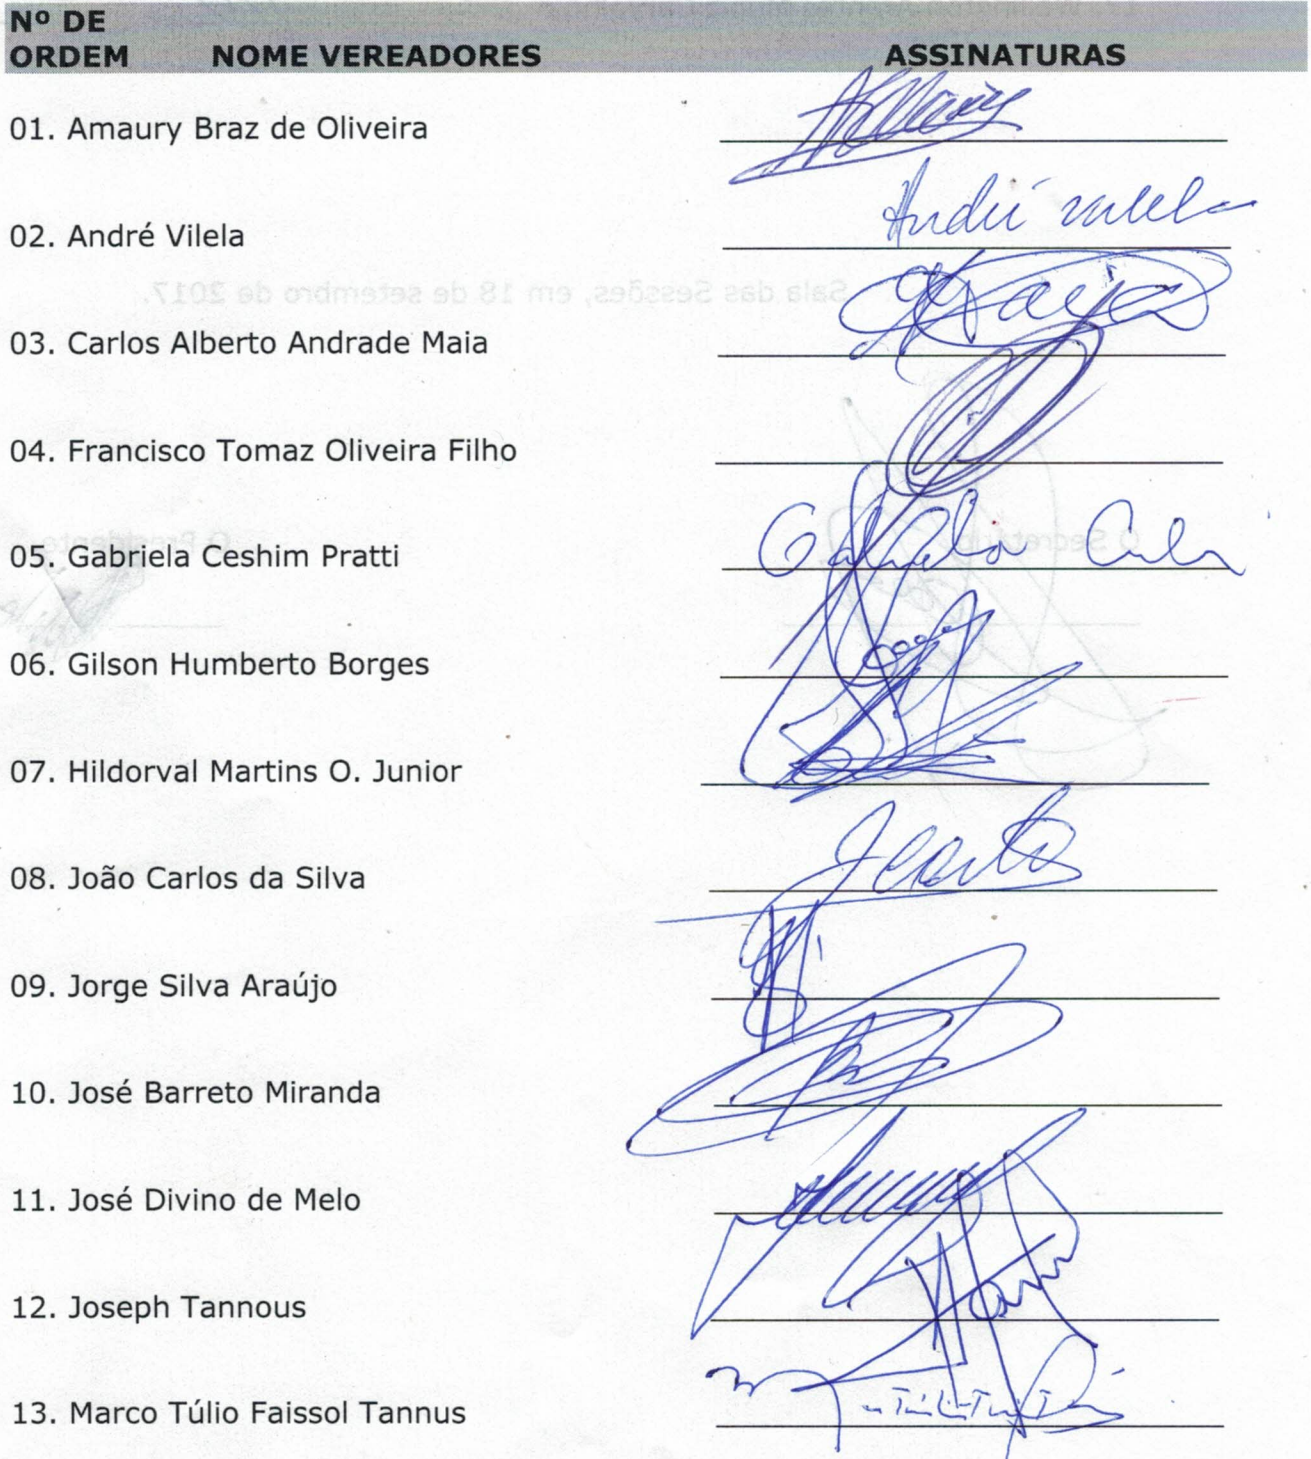 Nº DE
ORDEM NOME VEREADORES ASSINATURAS
01. Amaury Braz de Oliveira
02. André Vilela André Vilela
Sala das Sessões, em 18 de setembro de 2017.
03. Carlos Alberto Andrade Maia
04. Francisco Tomaz Oliveira Filho
O Presidente O Secretário
05. Gabriela Ceshim Pratti Gabriela
06. Gilson Humberto Borges
07. Hildorval Martins O. Junior
08. João Carlos da Silva
09. Jorge Silva Araújo
10. José Barreto Miranda
11. José Divino de Melo
12. Joseph Tannous
13. Marco Túlio Faissol Tannus